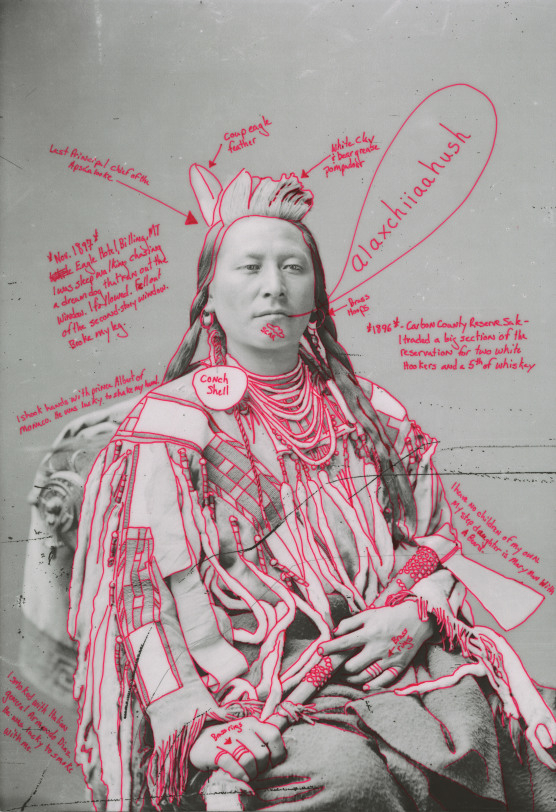 coup eagle
feather
White Clay
& bear grease
pompadour
Last Principal chief of the
Apsáalooke
alaxchiiaahush
*Nov. 1897*
Eagle Hotel, Billing, MT
I was sleep walking chasing
a dream dog that ran out the
window. I followed. Fell out
of the second story window.
Broke my leg.
Brass
Hoops
*1896* - Carbon County Reserve Sale -
I traded a big section of the
reservation for two white
Hookers and a 5th of whiskey
Conch
Shell
I shook hands with prince Albert of
monaco. He was lucky to shake my hand
I have no children of my own.
My step daughter is Mary Ann With
A Beard
Brass
rings
I smoked with Italian
general Armando Diaz
He was lucky to smoke
With me
Bass ring